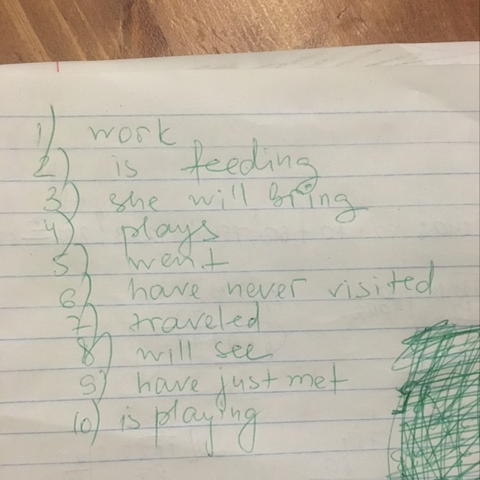 1) work
2) is feeding
3) she will bring
4) plays
5) went
6) have never visited
7) traveled
8) will see
9) have just met
10) is playing